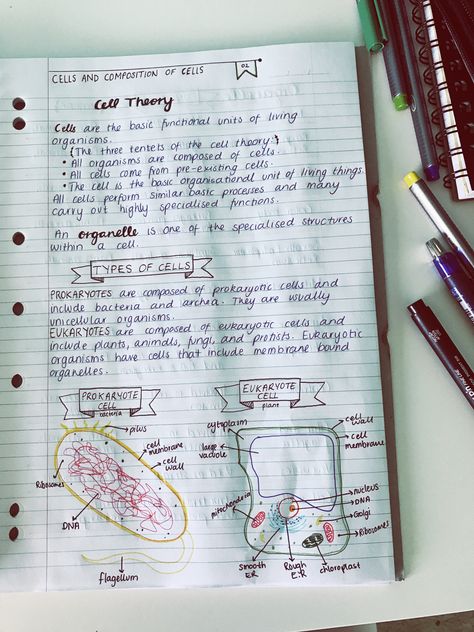 CELLS AND COMPOSITION OF CELLS
01
Cell Theory
Cells are the basic functional units of living
organisms.
{The three tentets of the cell theory:}
• All organisms are composed of cells.
• All cells come from pre-existing cells.
• The cell is the basic organisational unit of living things.
All cells perform similar basic processes and many
carry out highly specialised functions.
An organelle is one of the specialised structures
within a cell.
TYPES OF CELLS
PROKARYOTES are composed of prokaryotic cells and
include bacteria and archea. They are usually
unicellular organisms.
EUKARYOTES are composed of eukaryotic cells and
include plants, animals, fungi, and protists. Eukaryotic
organisms have cells that include membrane bound
organelles.
PROKARYOTE
CELL
bacteria
pilus
cell
membrane
cell
wall
Ribosomes
DNA
flagellum
EUKARYOTE
CELL
plant
cytoplasm
large
vacuole
cell
wall
cell
membrane
mitochondria
nucleus
DNA
Golgi
Ribosomes
smooth
ER
Rough
ER
chloroplast